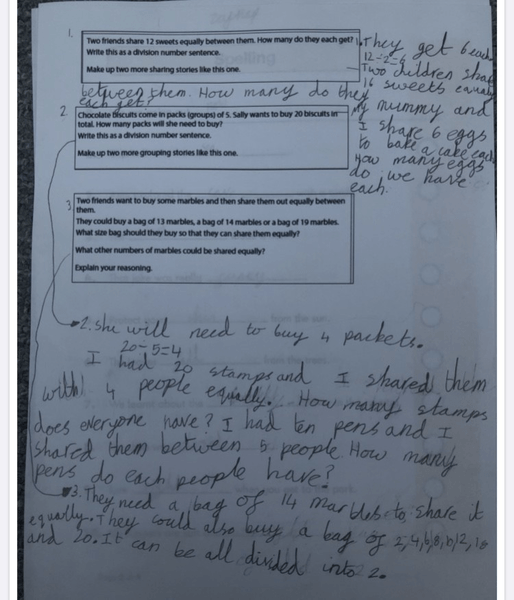 1.
Two friends share 12 sweets equally between them. How many do they each get?
Write this as a division number sentence.
Make up two more sharing stories like this one.
1. They get 6 each
12÷2=6
Two children share
16 sweets equally
between them. How many do they
each get?
My mummy and
I share 6 eggs
to bake a cake each
How many eggs
do we have
each.
2
Chocolate biscuits come in packs (groups) of 5. Sally wants to buy 20 biscuits in
total. How many packs will she need to buy?
Write this as a division number sentence.
Make up two more grouping stories like this one.
3
Two friends want to buy some marbles and then share them out equally between
them.
They could buy a bag of 13 marbles, a bag of 14 marbles or a bag of 19 marbles.
What size bag should they buy so that they can share them equally?
What other numbers of marbles could be shared equally?
Explain your reasoning.
2. she will need to buy 4 packets.
20÷5=4
I had 20 stamps and I shared them
with 4 people equally. How many stamps
does everyone have? I had ten pens and I
shared them between 5 people. How many
pens do each people have?
3. They need a bag of 14 marbles to share it
equally. They could also buy a bag of 2,4,6,8,10,12,18
and 20. It can be all divided into 2.